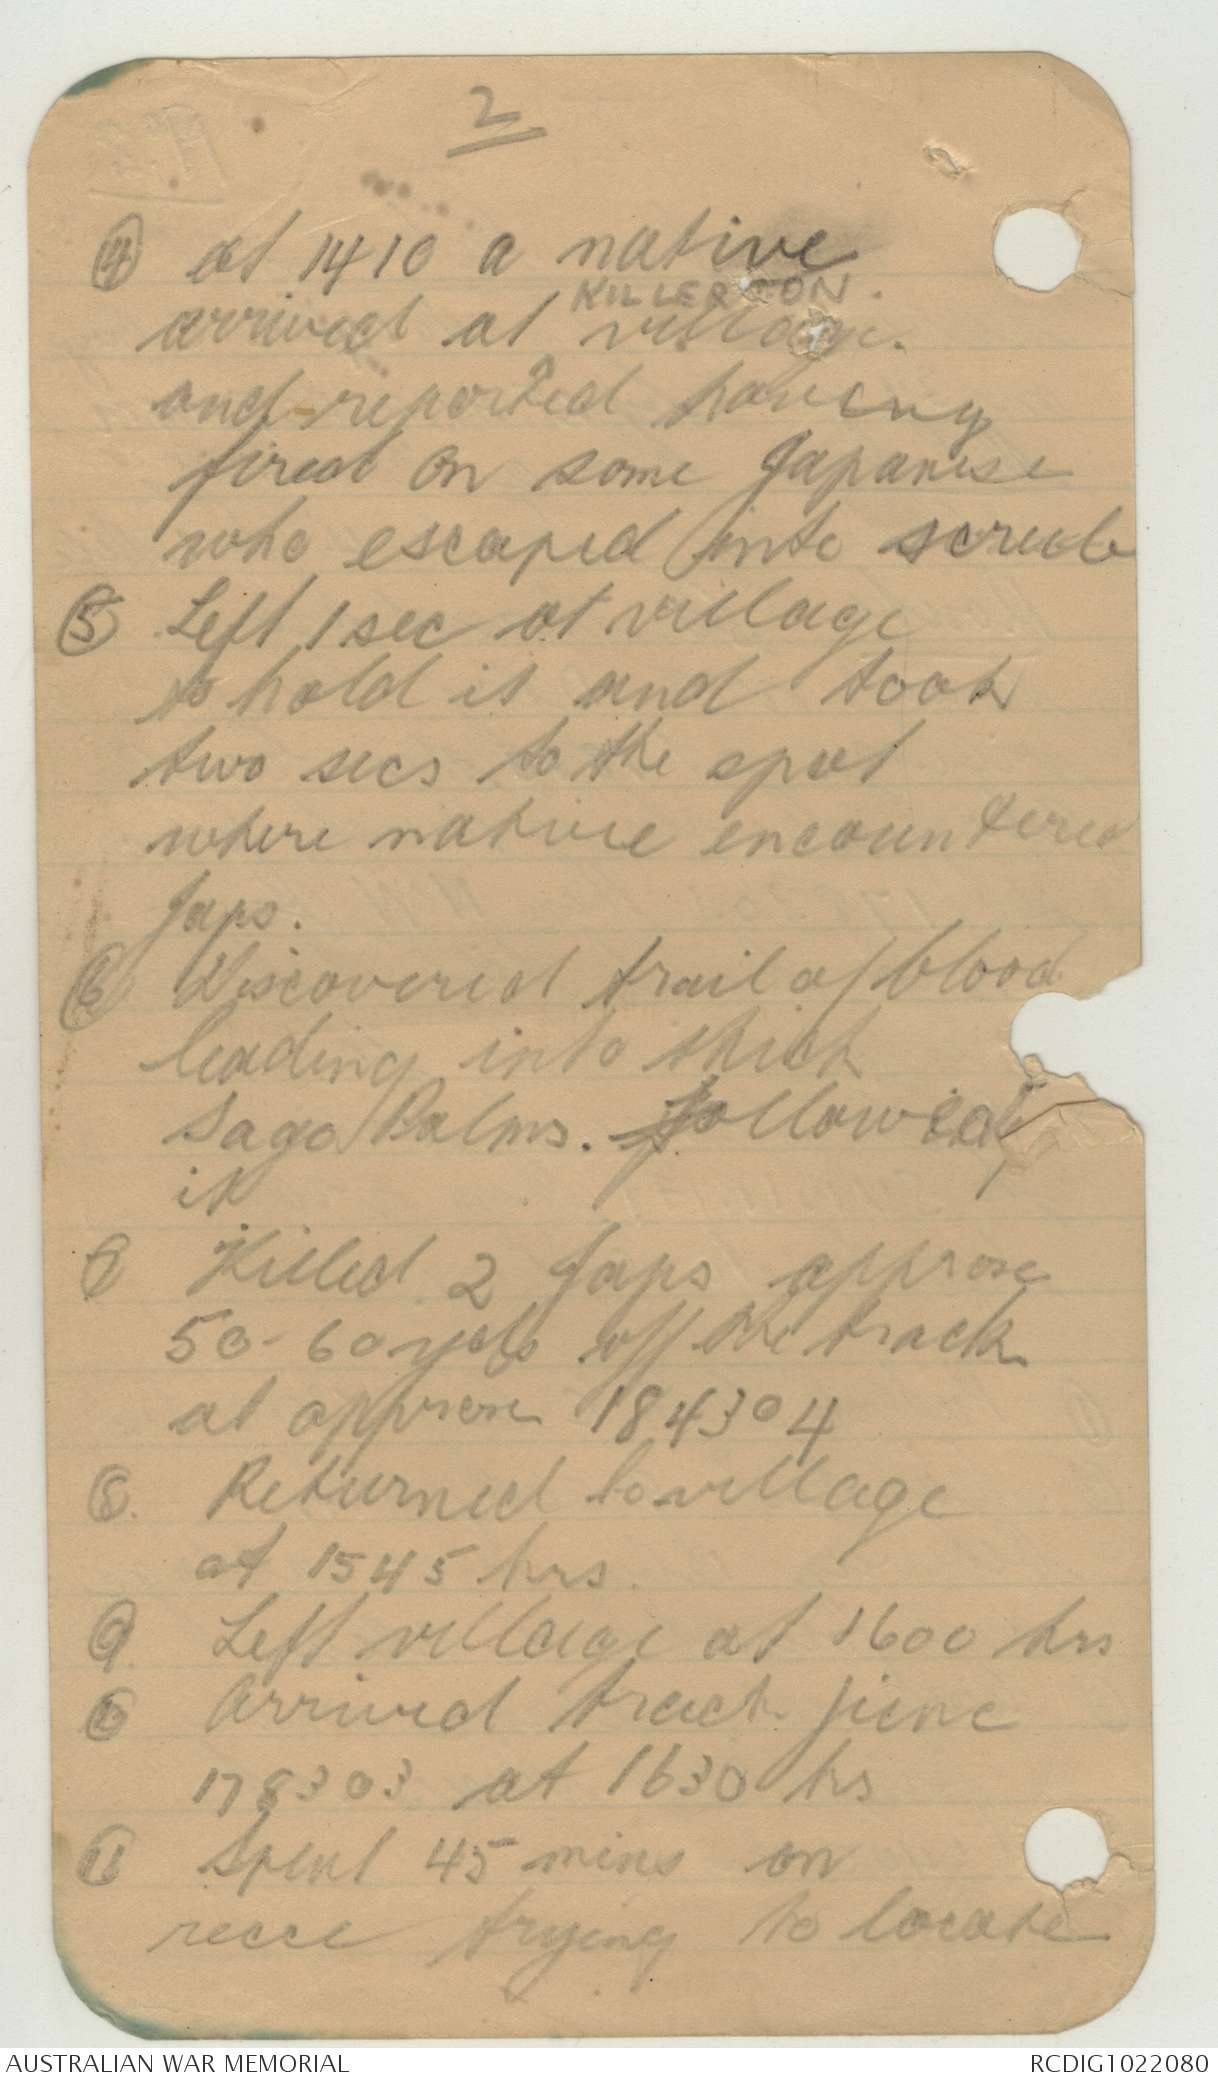 2
(4) at 1410 a native
KILLERTON.
arrived at village.
and reported having
fired on some Japanese
who escaped into scrub
(5) Left 1 sec at village
to hold it and took
two secs to the spot
where native encountered
Japs.
(6) Discovered trail of blood
leading into thick
Sago Palms. followed
it
7 Killed 2 Japs approx
50-60 yds off the track
at approx 184304
(8) Returned to village
at 1545 hrs.
(9) Left village at 1600 hrs
(10) Arrived track junc
178303 at 1630 hrs
(11) Spent 45 mins on
recce trying to locate
AUSTRALIAN WAR MEMORIAL
RCDIG1022080